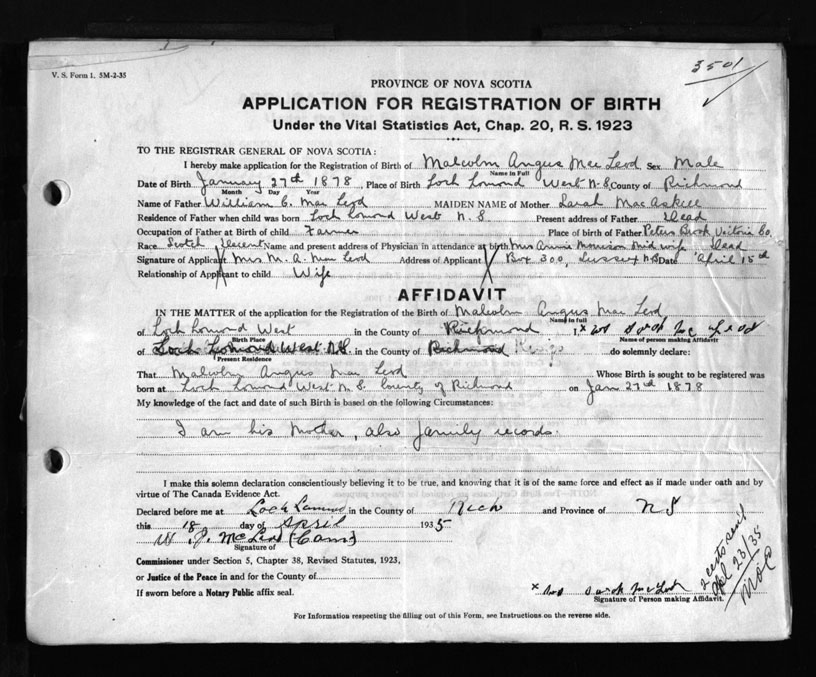 3501
V. S. Form 1. 5M-2-35
PROVINCE OF NOVA SCOTIA
APPLICATION FOR REGISTRATION OF BIRTH
Under the Vital Statistics Act, Chap. 20, R. S. 1923
TO THE REGISTRAR GENERAL OF NOVA SCOTIA:
I hereby make application for the Registration of Birth of Malcolm Angus Mac Leod Sex Male
Name in Full
Date of Birth January 27th 1878, Place of Birth Loch Lomond West N.S. County of Richmond
Month Day Year
Name of Father William C. Mac Leod MAIDEN NAME of Mother Sarah MacAskill
Residence of Father when child was born Loch Lomond West N.S. Present address of Father Dead
Occupation of Father at Birth of child Farmer Place of birth of Father Peters Brook Victoria Co.
Race Scotch Descent Name and present address of Physician in attendance at birth Mrs Annie Morrison Midwife Dead
Signature of Applicant Mrs M. A. Mac Leod Address of Applicant Box 300, Sussex N.B. Date April 15th
Relationship of Applicant to child Wife
AFFIDAVIT
IN THE MATTER of the application for the Registration of the Birth of Malcolm Angus Mac Leod
Name in full
of Loch Lomond West in the County of Richmond I, x
Birth Place Name of person making Affidavit
of Loch Lomond West N.S. in the County of Richmond do solemnly declare:
Present Residence
That Malcolm Angus Mac Leod Whose Birth is sought to be registered was
born at Loch Lomond West N.S. County of Richmond on Jan 27th 1878
My knowledge of the fact and date of such Birth is based on the following Circumstances:
I am his Mother, also family records.
I make this solemn declaration conscientiously believing it to be true, and knowing that it is of the same force and effect as if made under oath and by
virtue of The Canada Evidence Act.
Declared before me at Loch Lomond in the County of Rich and Province of N S
this 18 day of April 1935
W. J. McLeod (Com)
Signature of
Commissioner under Section 5, Chapter 38, Revised Statutes, 1923,
or Justice of the Peace in and for the County of
If sworn before a Notary Public affix seal.
x Sarah McLeod
Signature of Person making Affidavit.
2 certs sent
Apl 23/35
For Information respecting the filling out of this Form, see Instructions on the reverse side.